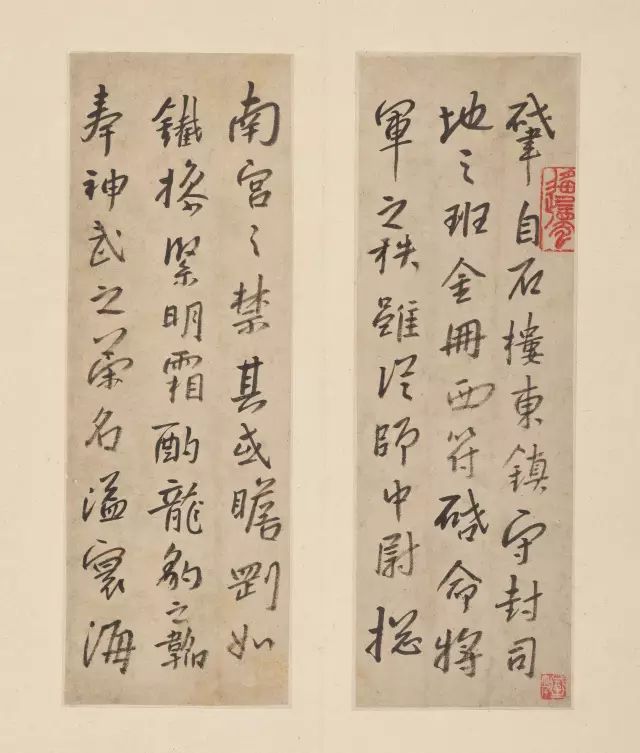 肈自石樓東鎮守封司
地之班金冊西符啓命將
軍之秩雖從師中尉捴
南宮之禁其或膽剛如
鐵操絜明霜酌龍豹之韜
奉神武之策名溢寰海